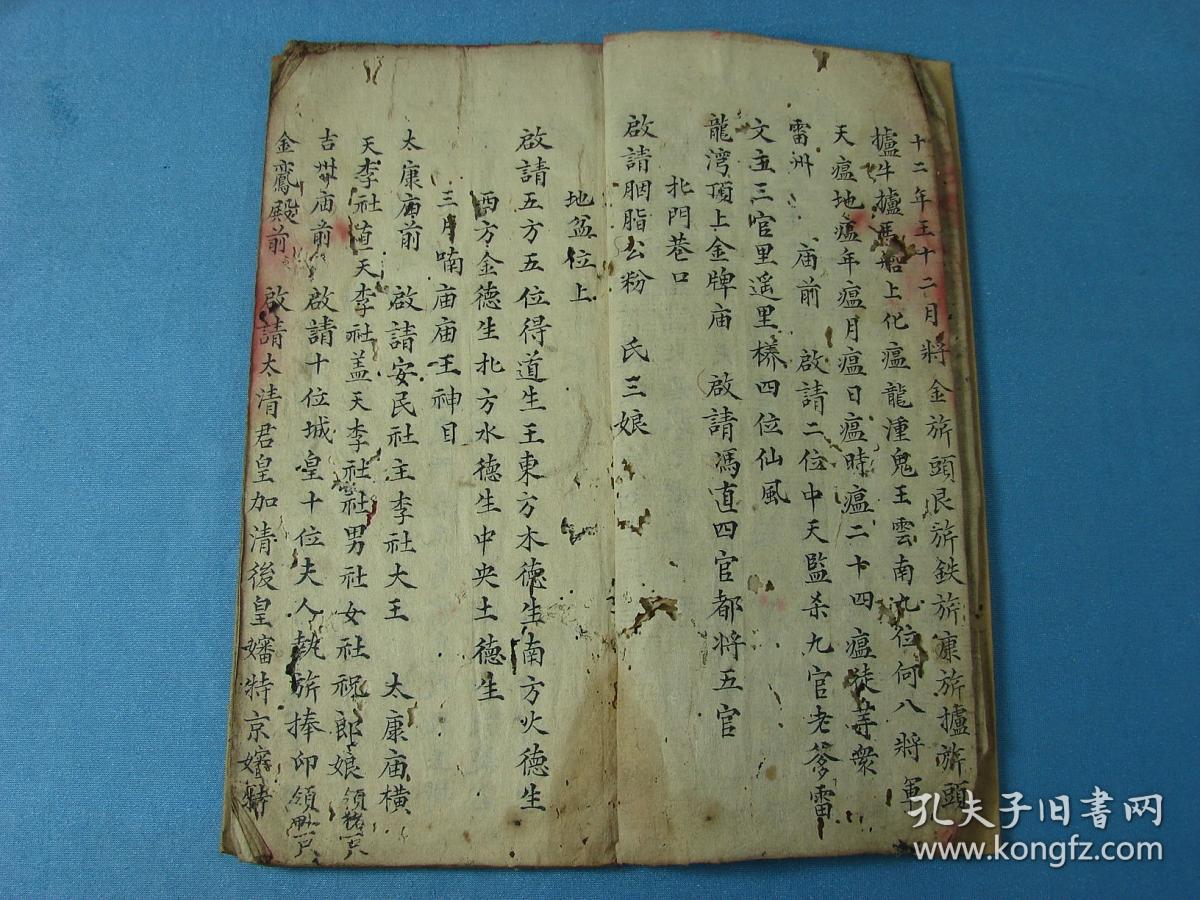 十二年王十二月將金旂頭良旂鉄旂康旂攎旂頭
攎牛攎馬船上化瘟龍湩鬼王雲南九位何八將軍
天瘟地瘟年瘟月瘟日瘟時瘟二十四瘟徒等眾
雷州 庙前 啟請二位中天監杀九官老爹雷
文主三官里遥里榛四位仙風
龍湾頂上金牌庙 啟請馮直四官都将五官
北門巷口
啟請胭脂公粉 氏三娘
地盆位上
啟請五方五位得道生王東方木德生南方火德生
西方金德生北方水德生中央土德生
三月喃庙庙王神目
太康庙前 啟請安民社主李社大王 太康庙横
天李社 天李社盖天李社社男社女社祝郎娘領
吉州庙前 啟請十位城皇十位夫人執旂捧印領
金鸞殿前 啟請太清君皇加清後皇嬸特京嬸特
孔夫子旧书网
www.kongfz.com